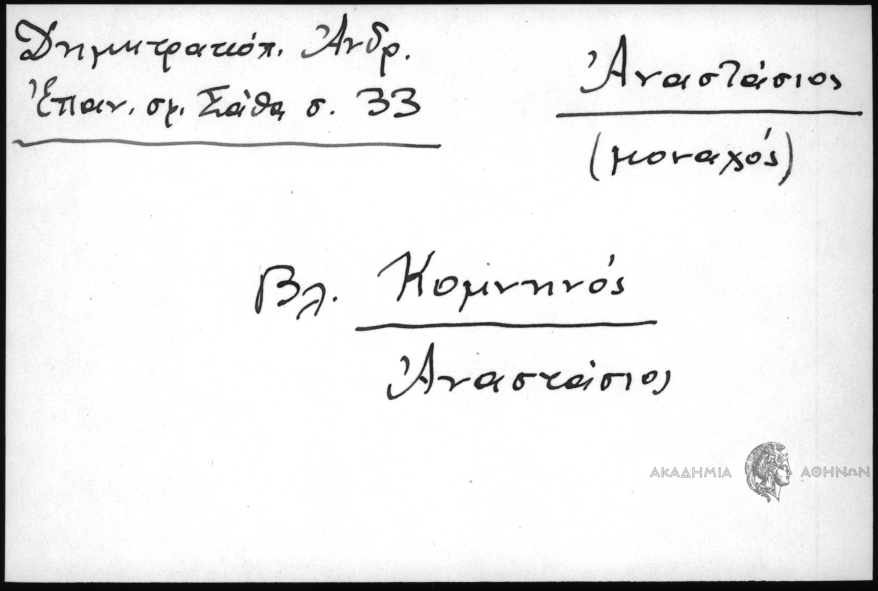 Δημητρακόπ. Ἀνδρ.
Ἐπαν. σχ. Σάθα σ. 33
Ἀναστάσιος
(μοναχός)
Βλ. Κομνηνός
Ἀναστάσιος
ΑΚΑΔΗΜΙΑ ΑΘΗΝΩΝ